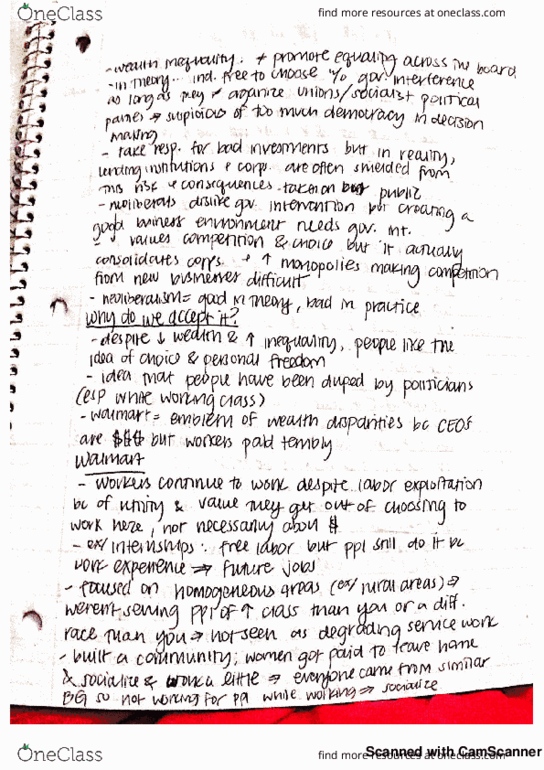 OneClass
find more resources at oneclass.com
- wealth inequality. + promote equality across the board
- in theory... ind. free to choose w/o gov. interference
as long as they ≠ organize unions/socialist political
parties → suspicious of too much democracy in decision
making
- take resp. for bad investments but in reality,
lending institutions & corp. are often shielded from
this risk & consequences taken on by public
- neoliberals dislike gov. intervention but creating a
good business environment needs gov. int.
↳ values competition & choice but it actually
consolidates corps. + ↑ monopolies making competition
from new businesses difficult
- neoliberalism = good in theory, bad in practice
Why do we accept it?
- despite ↓ wealth & ↑ inequality, people like the
idea of choice & personal freedom
- idea that people have been duped by politicians
(esp white working class)
- walmart = emblem of wealth disparities bc CEOs
are $$$ but workers paid terribly
Walmart
- workers continue to work despite labor exploitation
bc of utility & value they get out of choosing to
work here, not necessarily about $
- ex/ internships: free labor but ppl still do it bc
work experience ⇒ future jobs
- focused on homogeneous areas (ex/ rural areas) ⇒
weren't serving ppl of ↑ class than you or a diff.
race than you ⇒ not seen as degrading service work
- built a community; women got paid to leave home
& socialize & work a little ⇒ everyone came from similar
BG so not working for ppl while working ⇒ socialize
OneClass
find more resources at oneclass.com
Scanned with CamScanner